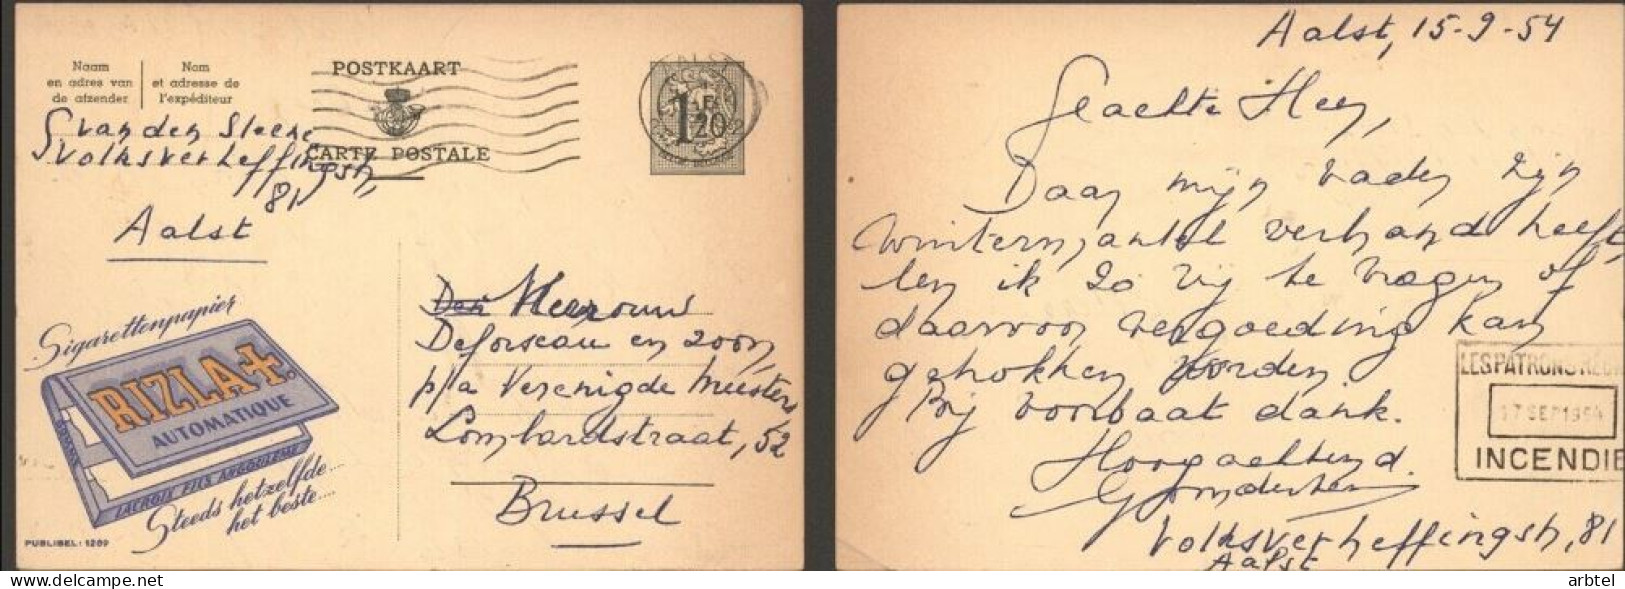 Naam
en adres van
de afzender
Nom
et adresse de
l'expéditeur
POSTKAART
CARTE POSTALE
1F20
S van den Steene
Volksverheffingstr,
81
Aalst
Sigarettenpapier
RIZLA+.
AUTOMATIQUE
LACROIX FILS ANGOULEME
Steeds hetzelfde....
het beste....
PUBLIBEL: 1289
Den Heer
Deforseau en zoon
p/a Verenigde Meesters
Lombardstraat, 52
Brussel
Aalst, 15-9-54
Geachte Heer,
Daar mijn vader zijn
wintermantel verbrand heeft,
ben ik zo vrij te vragen of
daarvoor vergoeding kan
getrokken worden.
Bij voorbaat dank.
Hoogachtend.
Volksverheffingstr, 81
Aalst
LES PATRONS RÉUN
17 SEP 1954
INCENDIE
arbtel